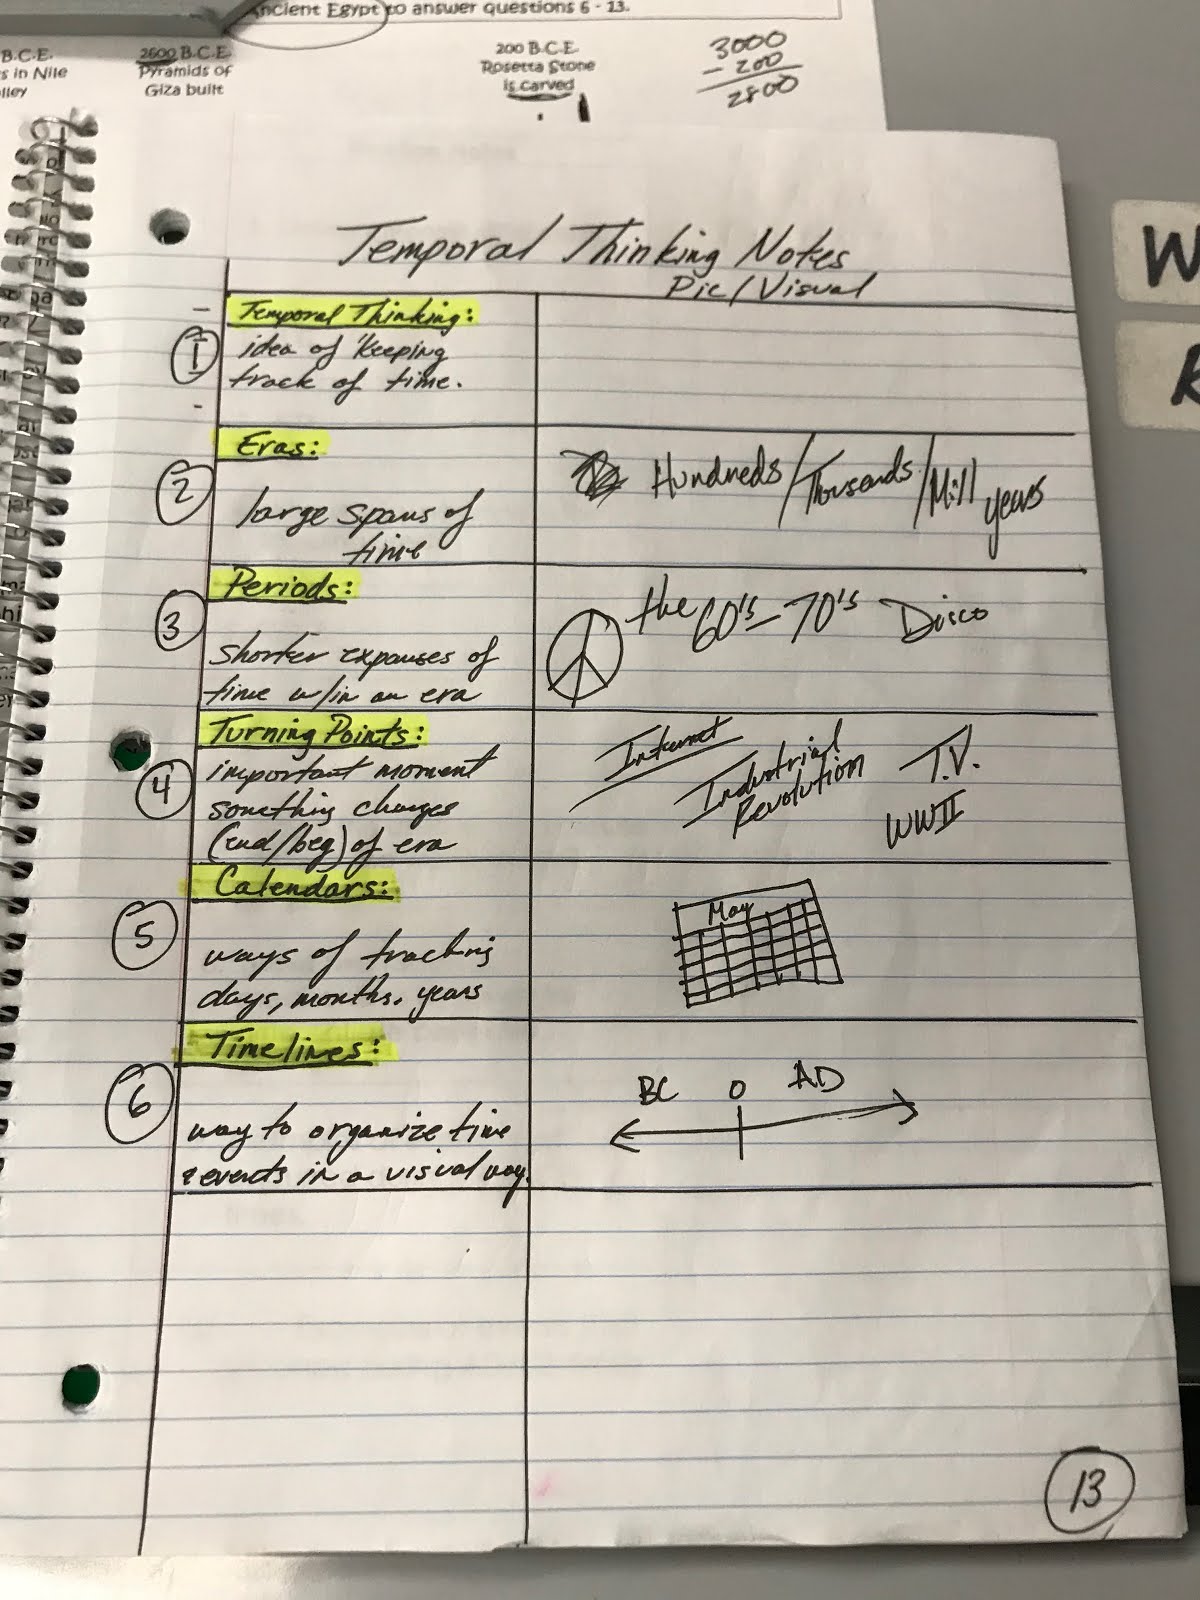 Ancient Egypt to answer questions 6 - 13.
B.C.E.
s in Nile
lley
2600 B.C.E.
Pyramids of
Giza built
200 B.C.E.
Rosetta Stone
is carved
3000
- 200
2800
Temporal Thinking Notes
Pic/Visual
1
Temporal Thinking:
idea of keeping
track of time.
2
Eras:
large spans of
time
Hundreds/Thousands/Mill
years
3
Periods:
shorter expanses of
time w/in an era
the 60's - 70's Disco
4
Turning Points:
important moment
something changes
(end/beg) of era
Internet
Industrial
Revolution
T.V.
WWII
5
Calendars:
ways of tracking
days, months, years
May
6
Timelines:
way to organize time
& events in a visual way.
BC 0 AD
13
W